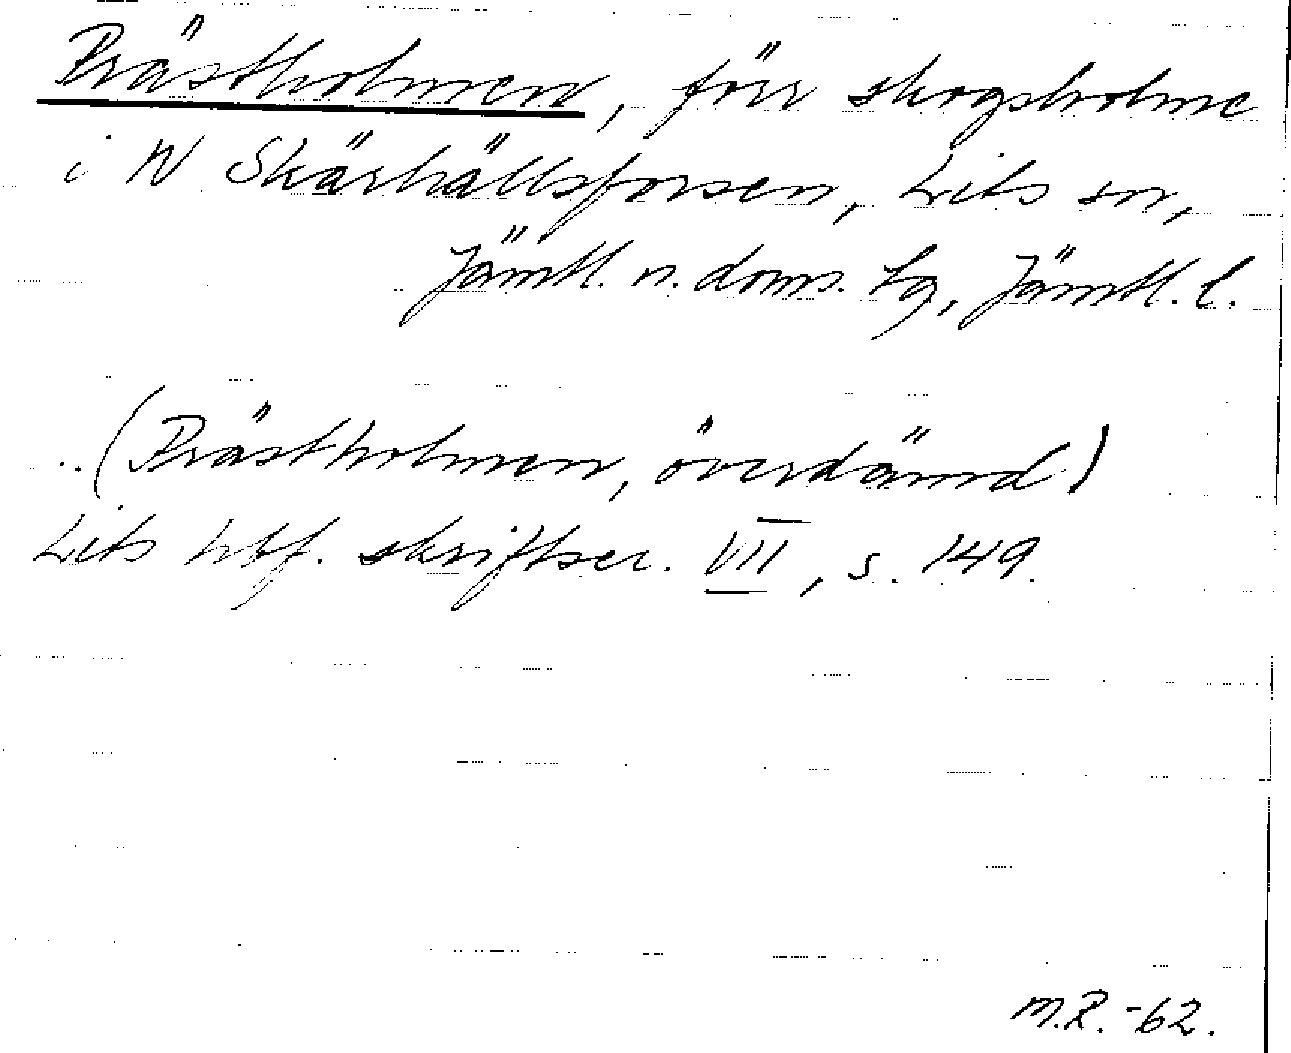 Prästholmen, förr skogsholme
i N Skärhällsforsen, Lits sn,
Jämtl. n. doms. tg, Jämtl. l.
(Prästholmen, överdämd)
Lits hbf. skriftser. VII, s. 149.
M.R. -62.